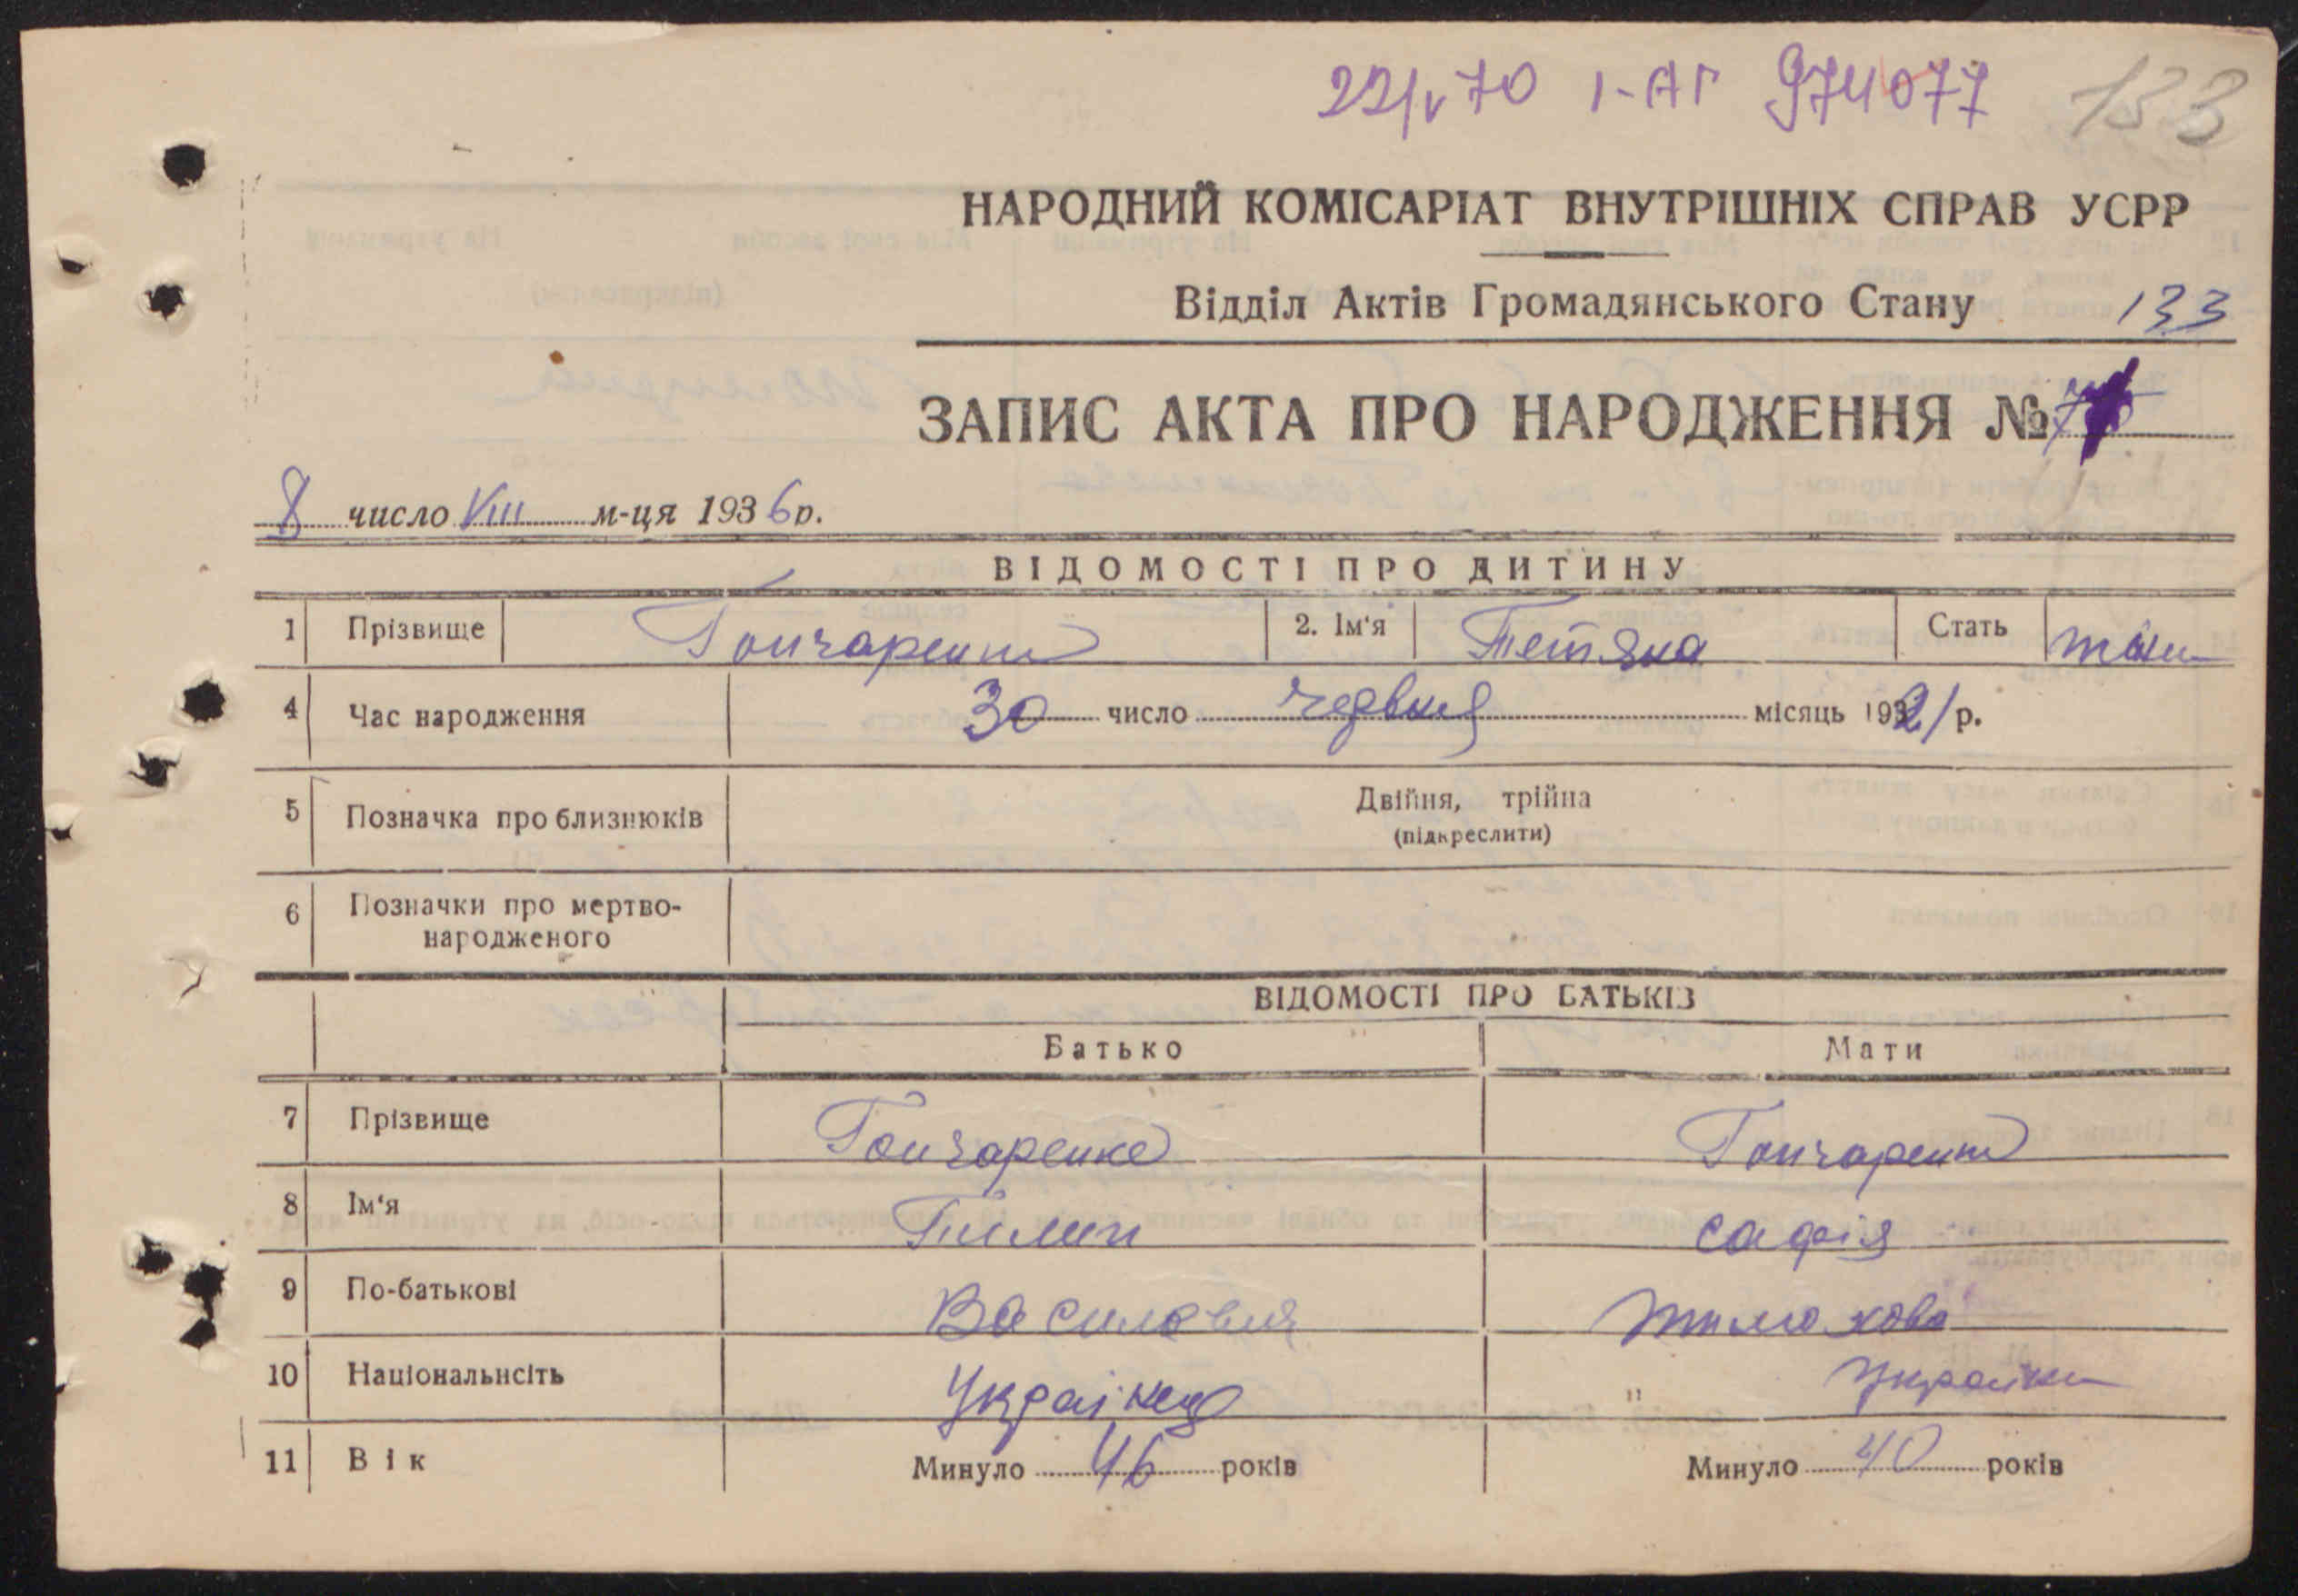 22/V 70 І-АГ 974077 133
НАРОДНИЙ КОМІСАРІАТ ВНУТРІШНІХ СПРАВ УСРР
Відділ Актів Громадянського Стану 133
ЗАПИС АКТА ПРО НАРОДЖЕННЯ №
8 число VIII м-ця 1936 р.
ВІДОМОСТІ ПРО ДИТИНУ
1 Прізвище Гончаренко 2. Ім'я Тетяна Стать
4 Час народження 30 число червня місяць 1921 р.
5 Позначка про близнюків Двійня, трійна
(підкреслити)
6 Позначки про мертво-
народженого
ВІДОМОСТІ ПРО БАТЬКІВ
Батько Мати
7 Прізвище Гончаренко Гончаренко
8 Ім'я Пилип Софія
9 По-батькові
10 Національнсіть Українец " Українка
11 Вік Минуло 46 років Минуло 40 років